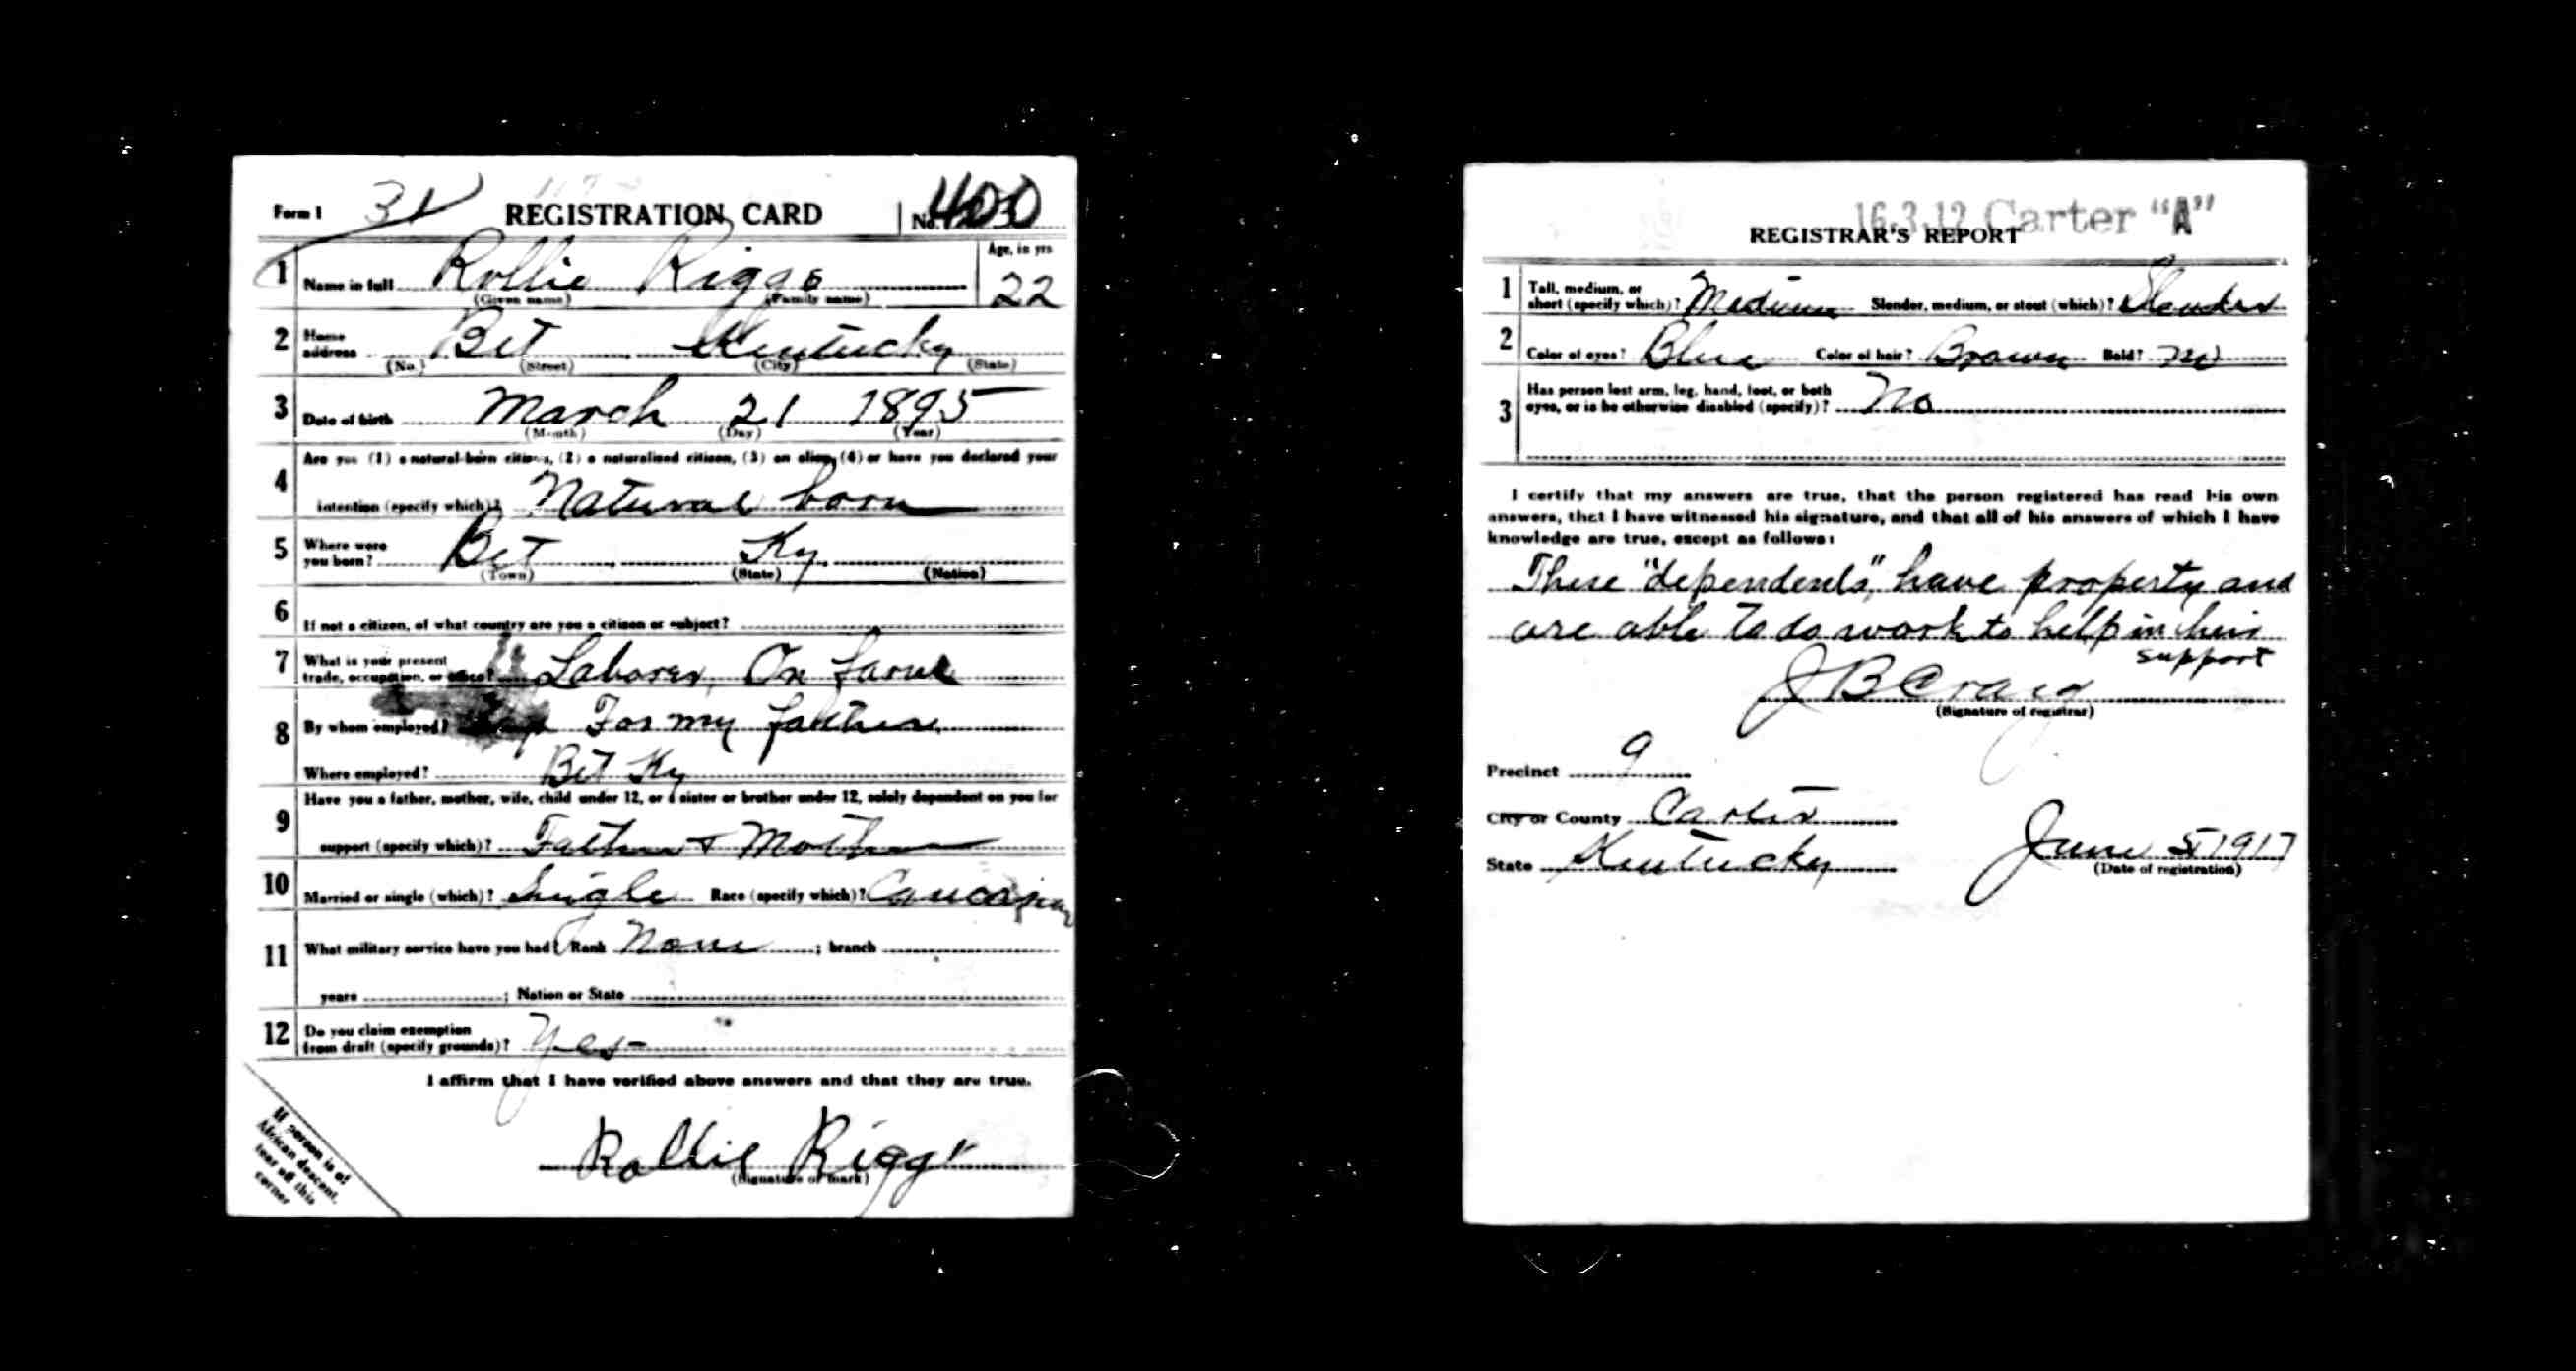 Form 1 31 REGISTRATION CARD No. 400
1 Name in full Rollie Riggs Age, in yrs
(Given name) (Family name) 22
2 Home address Bet Kentucky
(No.) (Street) (City) (State)
3 Date of birth March 21 1895
(Month) (Day) (Year)
4 Are you (1) a natural-born citizen, (2) a naturalized citizen, (3) an alien, (4) or have you declared your
intention (specify which)? Natural born
5 Where were you born? Bet Ky.
(Town) (State) (Nation)
6 If not a citizen, of what country are you a citizen or subject?
7 What is your present
trade, occupation, or office? Laborer, On farm
8 By whom employed? For my father
Where employed? Bet Ky
9 Have you a father, mother, wife, child under 12, or a sister or brother under 12, solely dependent on you for
support (specify which)? Father & Mother
10 Married or single (which)? Single Race (specify which)? Caucasian
11 What military service have you had? Rank None ; branch
years ; Nation or State
12 Do you claim exemption
from draft (specify grounds)? Yes
I affirm that I have verified above answers and that they are true.
Rollie Riggs
(Signature or mark)
If person is of
African descent,
tear off this
corner
16-3-12 Carter "A"
REGISTRAR'S REPORT
1 Tall, medium, or
short (specify which)? Medium Slender, medium, or stout (which)? Slender
2 Color of eyes? Blue Color of hair? Brown Bald? No
3 Has person lost arm, leg, hand, foot, or both
eyes, or is he otherwise disabled (specify)? No
I certify that my answers are true, that the person registered has read his own
answers, that I have witnessed his signature, and that all of his answers of which I have
knowledge are true, except as follows:
These "dependents" have property and
are able to do work to help in their
support
J B Craig
(Signature of registrar)
Precinct 9
City or County Carter
State Kentucky June 5, 1917
(Date of registration)